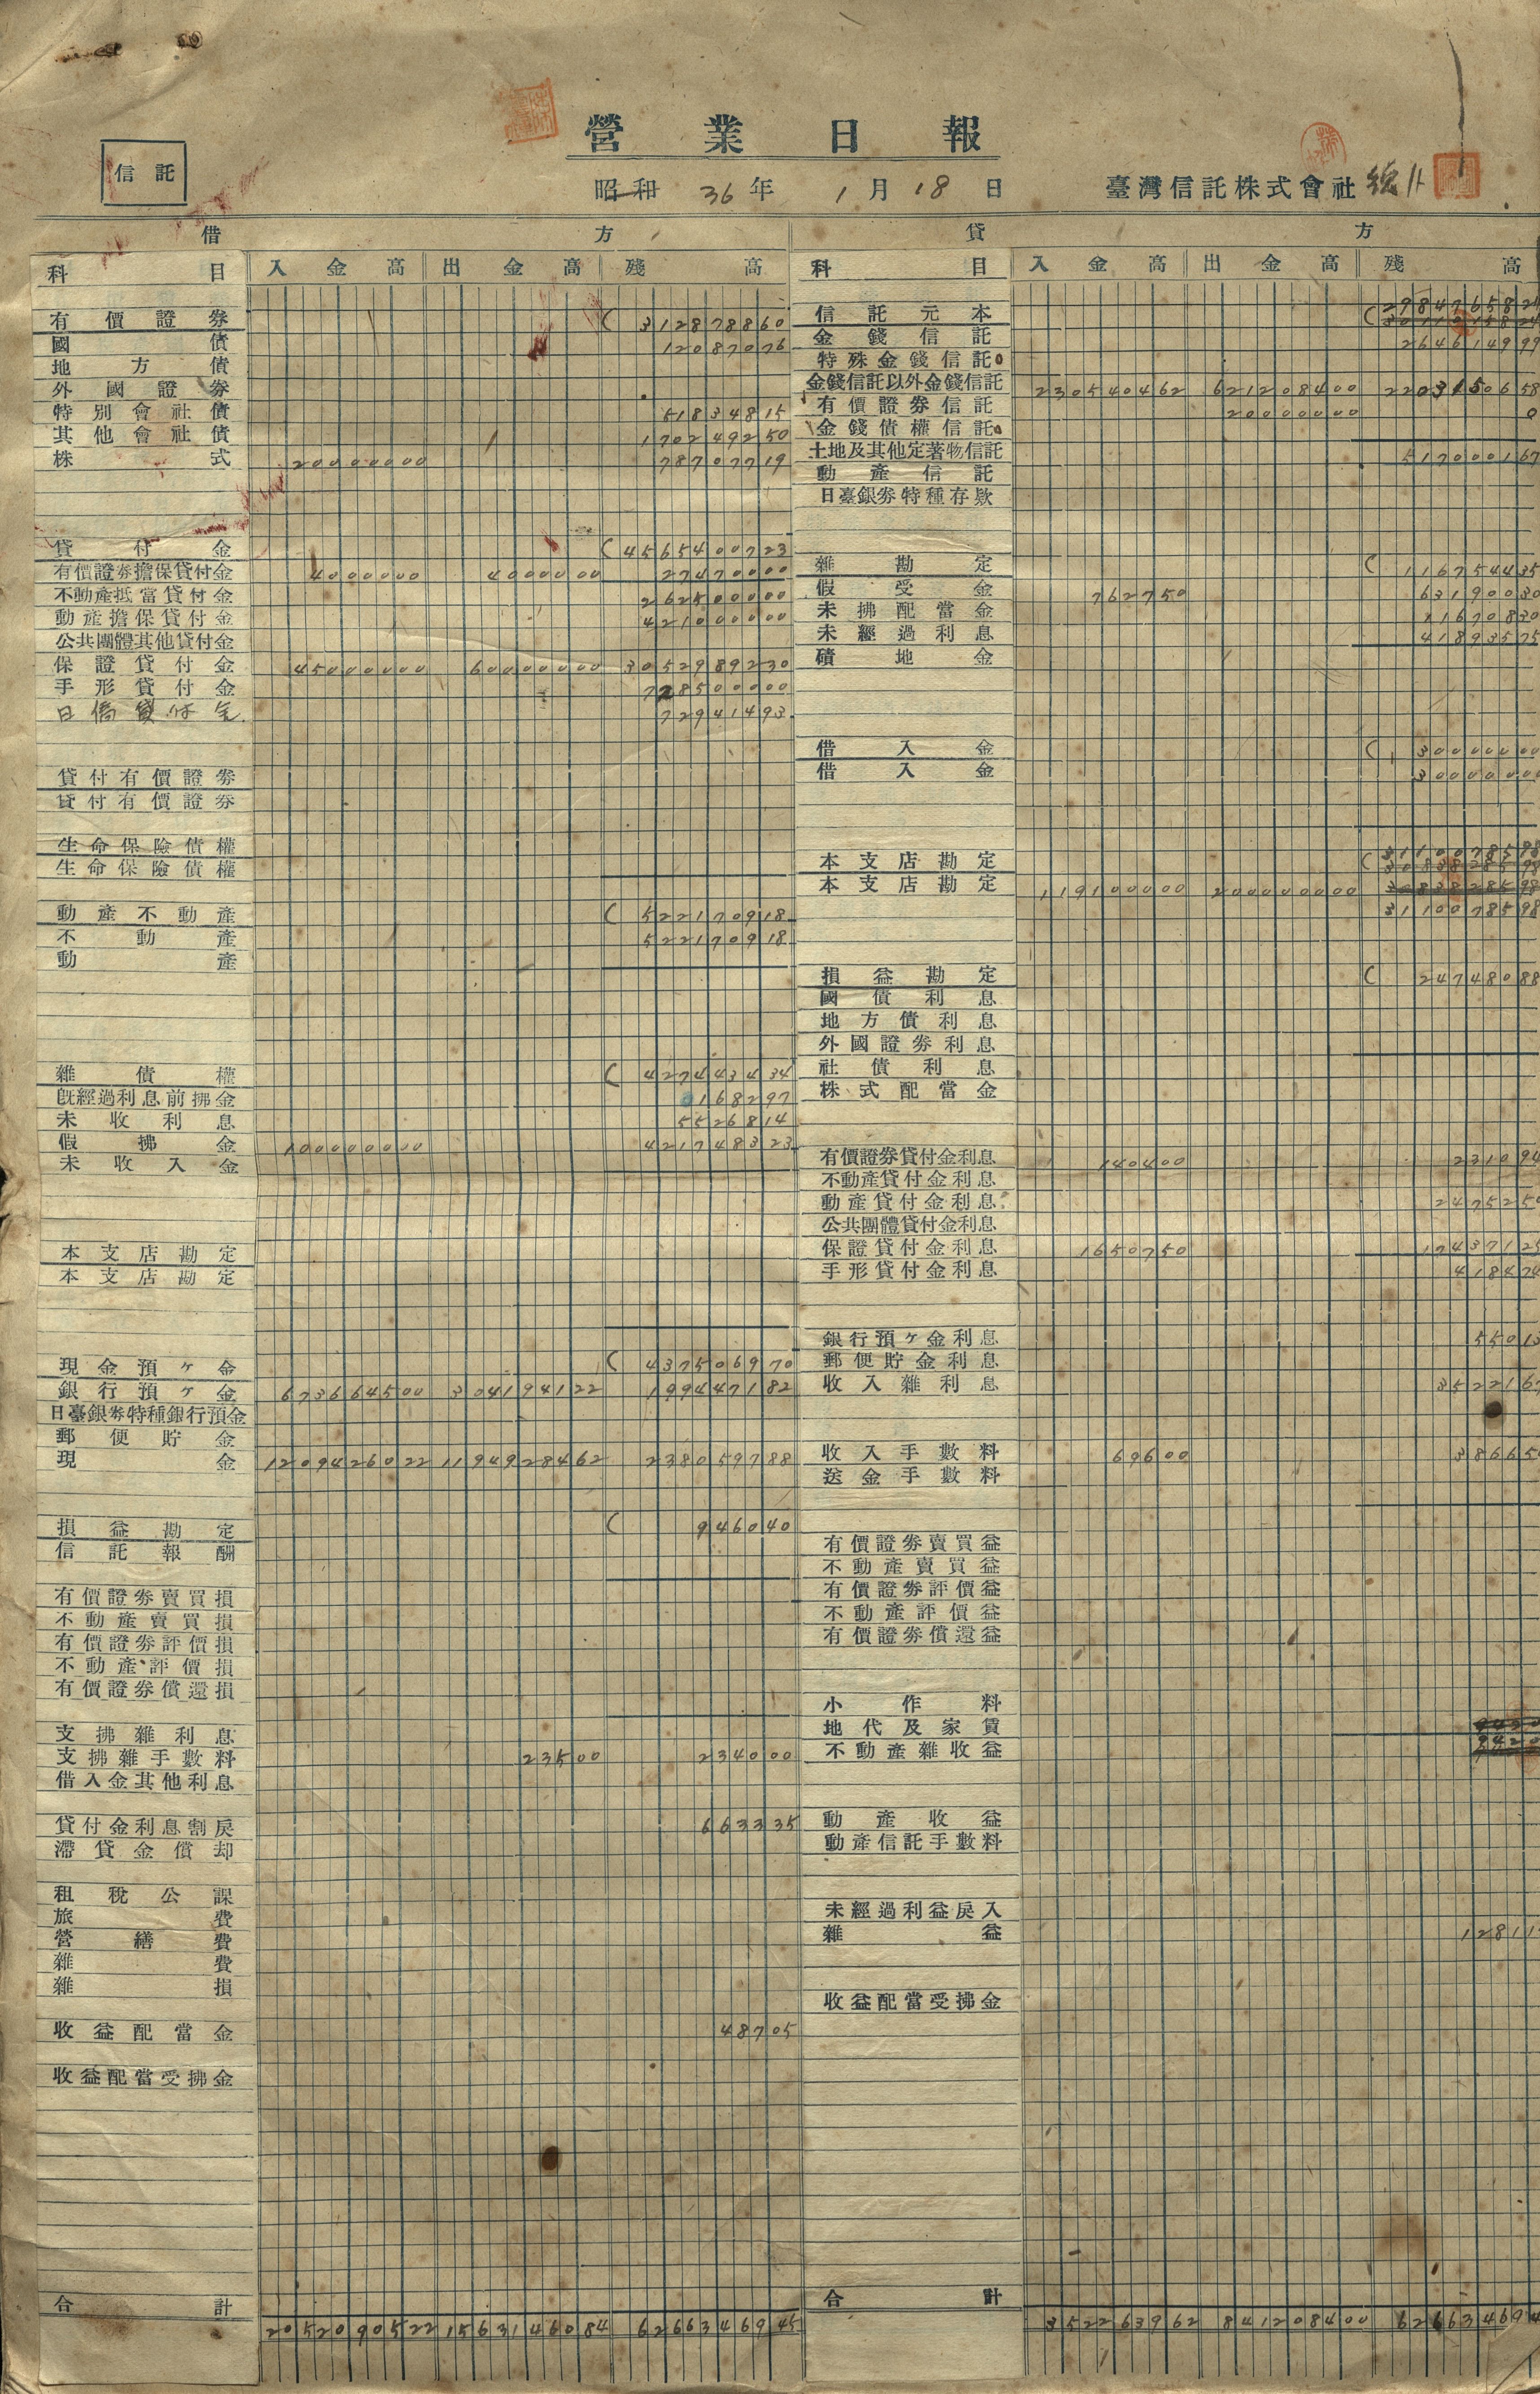 營業日報
信託
昭和 36年 1月18日 臺灣信託株式會社
借方 貸方
科目 入金高 出金高 殘高
有價證券 ( 3128788 60
國債 1208707 6
地方債
外國證券
特別會社債 51834815
其他會社債 170249250
株式 20000000 78707719
貸付金 ( 4565400723
有價證券擔保貸付金 4000000 4000000 27470000
不動產抵當貸付金 262500000
動產擔保貸付金 421000000
公共團體其他貸付金
保證貸付金 45000000 60000000 3052989230
手形貸付金 728500000
日僑貸付金 72941493
貸付有價證券
貸付有價證券
生命保險債權
生命保險債權
動產不動產 ( 522170918
不動產 522170918
動產
雜債權 ( 427443434
旣經過利息前拂金 168297
未收利息 5526814
假拂金 100000000 421748323
未收入金
本支店勘定
本支店勘定
現金預ケ金 ( 437506970
銀行預ケ金 673664500 304194122 199447182
日臺銀券特種銀行預金
郵便貯金
現金 1209426022 1194928462 238059788
損益勘定 ( 946040
信託報酬
有價證券賣買損
不動產賣買損
有價證券評價損
不動產評價損
有價證券償還損
支拂雜利息
支拂雜手數料 23500 234000
借入金其他利息
貸付金利息割戾
滯貸金償却
租稅公課
旅費
營繕費
雜費
雜損
收益配當金 48705
收益配當受拂金
合計 2052090522 1563146084 6266346945
科目 入金高 出金高 殘高
信託元本
金錢信託 264614999
特殊金錢信託
金錢信託以外金錢信託 230540462 621208400 2203150658
有價證券信託 20000000 0
金錢債權信託
土地及其他定著物信託 517000167
動產信託
日臺銀券特種存欵
雜勘定 ( 116754435
假受金 762750 63190030
未拂配當金 11670830
未經過利息 41893575
積地金
借入金 ( 30000000
借入金 30000000
本支店勘定
本支店勘定 119100000 200000000
3110078598
損益勘定 ( 24748088
國債利息
地方債利息
外國證券利息
社債利息
株式配當金
有價證券貸付金利息 140400 231094
不動產貸付金利息
動產貸付金利息 247525
公共團體貸付金利息
保證貸付金利息 1650750 17437125
手形貸付金利息 418474
銀行預ケ金利息 55013
郵便貯金利息
收入雜利息 352216
收入手數料 69600 38665
送金手數料
有價證券賣買益
不動產賣買益
有價證券評價益
不動產評價益
有價證券償還益
小作料
地代及家賃
不動產雜收益
動產收益
動產信託手數料
未經過利益戾入
雜益 12811
收益配當受拂金
合計 352263962 841208400 626634694